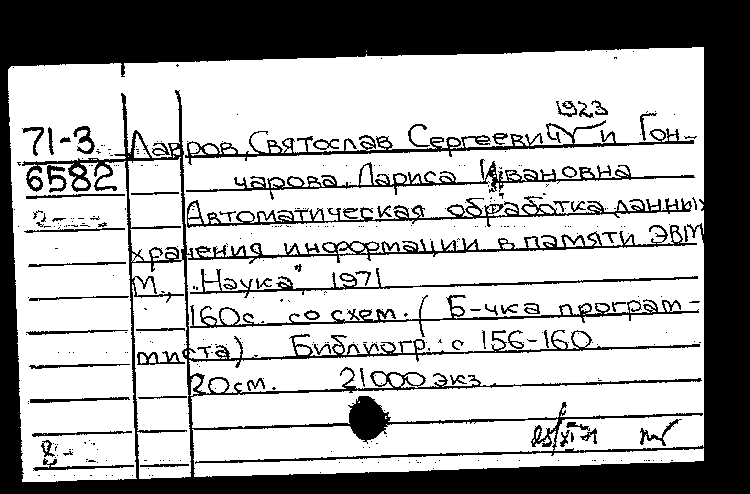 1923
71-3 Лавров, Святослав Сергеевич и Гон-
6582 чарова, Лариса Ивановна
Автоматическая обработка данных
хранения информации в памяти ЭВМ
М., „Наука", 1971
160с. со схем. (Б-чка програм-
миста). Библиогр.: с 156-160.
20см. 21000 экз.